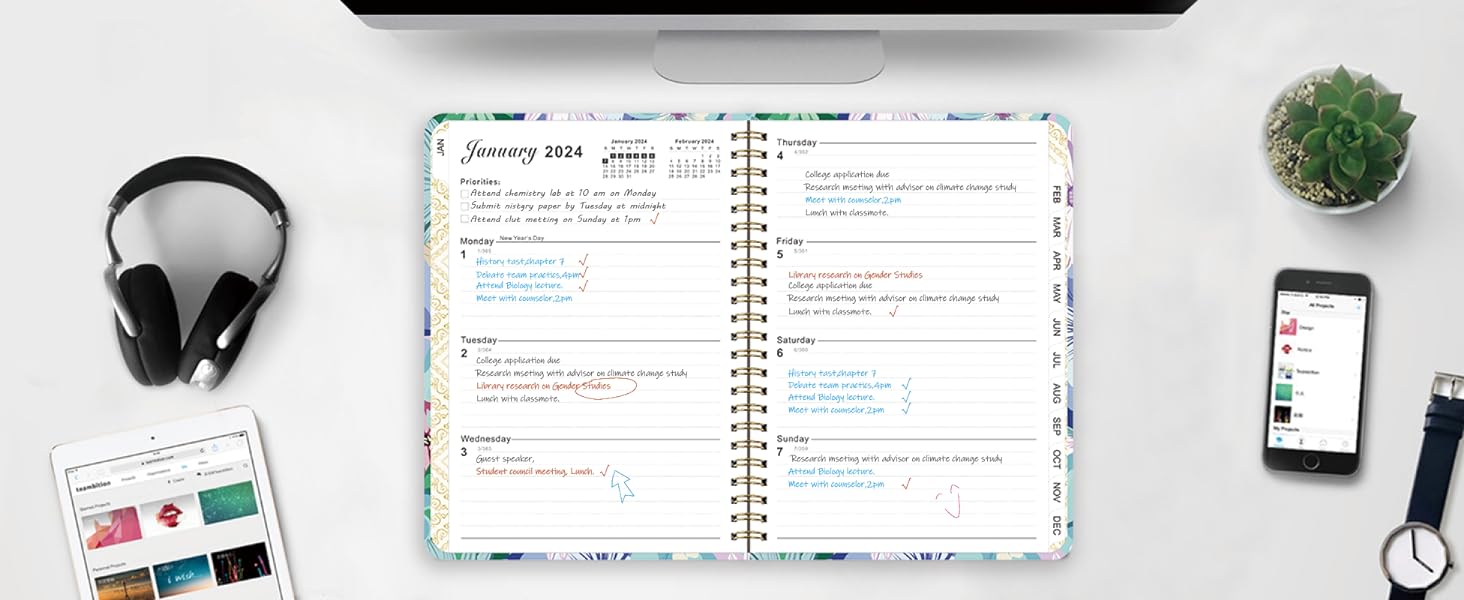 JAN
January 2024
January 2024
S M T W T F S
1 2 3 4 5 6
7 8 9 10 11 12 13
14 15 16 17 18 19 20
21 22 23 24 25 26 27
28 29 30 31
February 2024
S M T W T F S
1 2 3
4 5 6 7 8 9 10
11 12 13 14 15 16 17
18 19 20 21 22 23 24
25 26 27 28 29
Priorities:
Attend chemistry lab at 10 am on Monday
Submit nistgry paper by Tuesday at midnight
Attend clut metting on Sunday at 1pm
Monday New Year's Day
1
1/365
History tast,chapter 7
Debate team practics,4pm
Attend Biology lecture.
Meet with counselor,2pm
Tuesday
2
2/364
College application due
Research mseting with advisor on climate change study
Library research on Gender Studies
Lunch with classmote.
Wednesday
3
3/363
Guest speaker,
Student council meeting, Lunch.
Thursday
4
4/362
College application due
Research mseting with advisor on climate change study
Meet with counselor,2pm
Lunch with classmote.
Friday
5
5/361
Library research on Gender Studies
College application due
Research mseting with advisor on climate change study
Lunch with classmote.
Saturday
6
6/360
History tast,chapter 7
Debate team practics,4pm
Attend Biology lecture.
Meet with counselor,2pm
Sunday
7
7/359
Research mseting with advisor on climate change study
Attend Biology lecture.
Meet with counselor,2pm
FEB
MAR
APR
MAY
JUN
JUL
AUG
SEP
OCT
NOV
DEC
teambition
Projects
Starred Projects
Personal Projects
i wish
All Projects
Star
Design
Notice
Teambition
My Projects